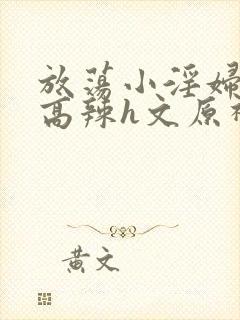 放荡小淫妇
高辣h文原
黄文